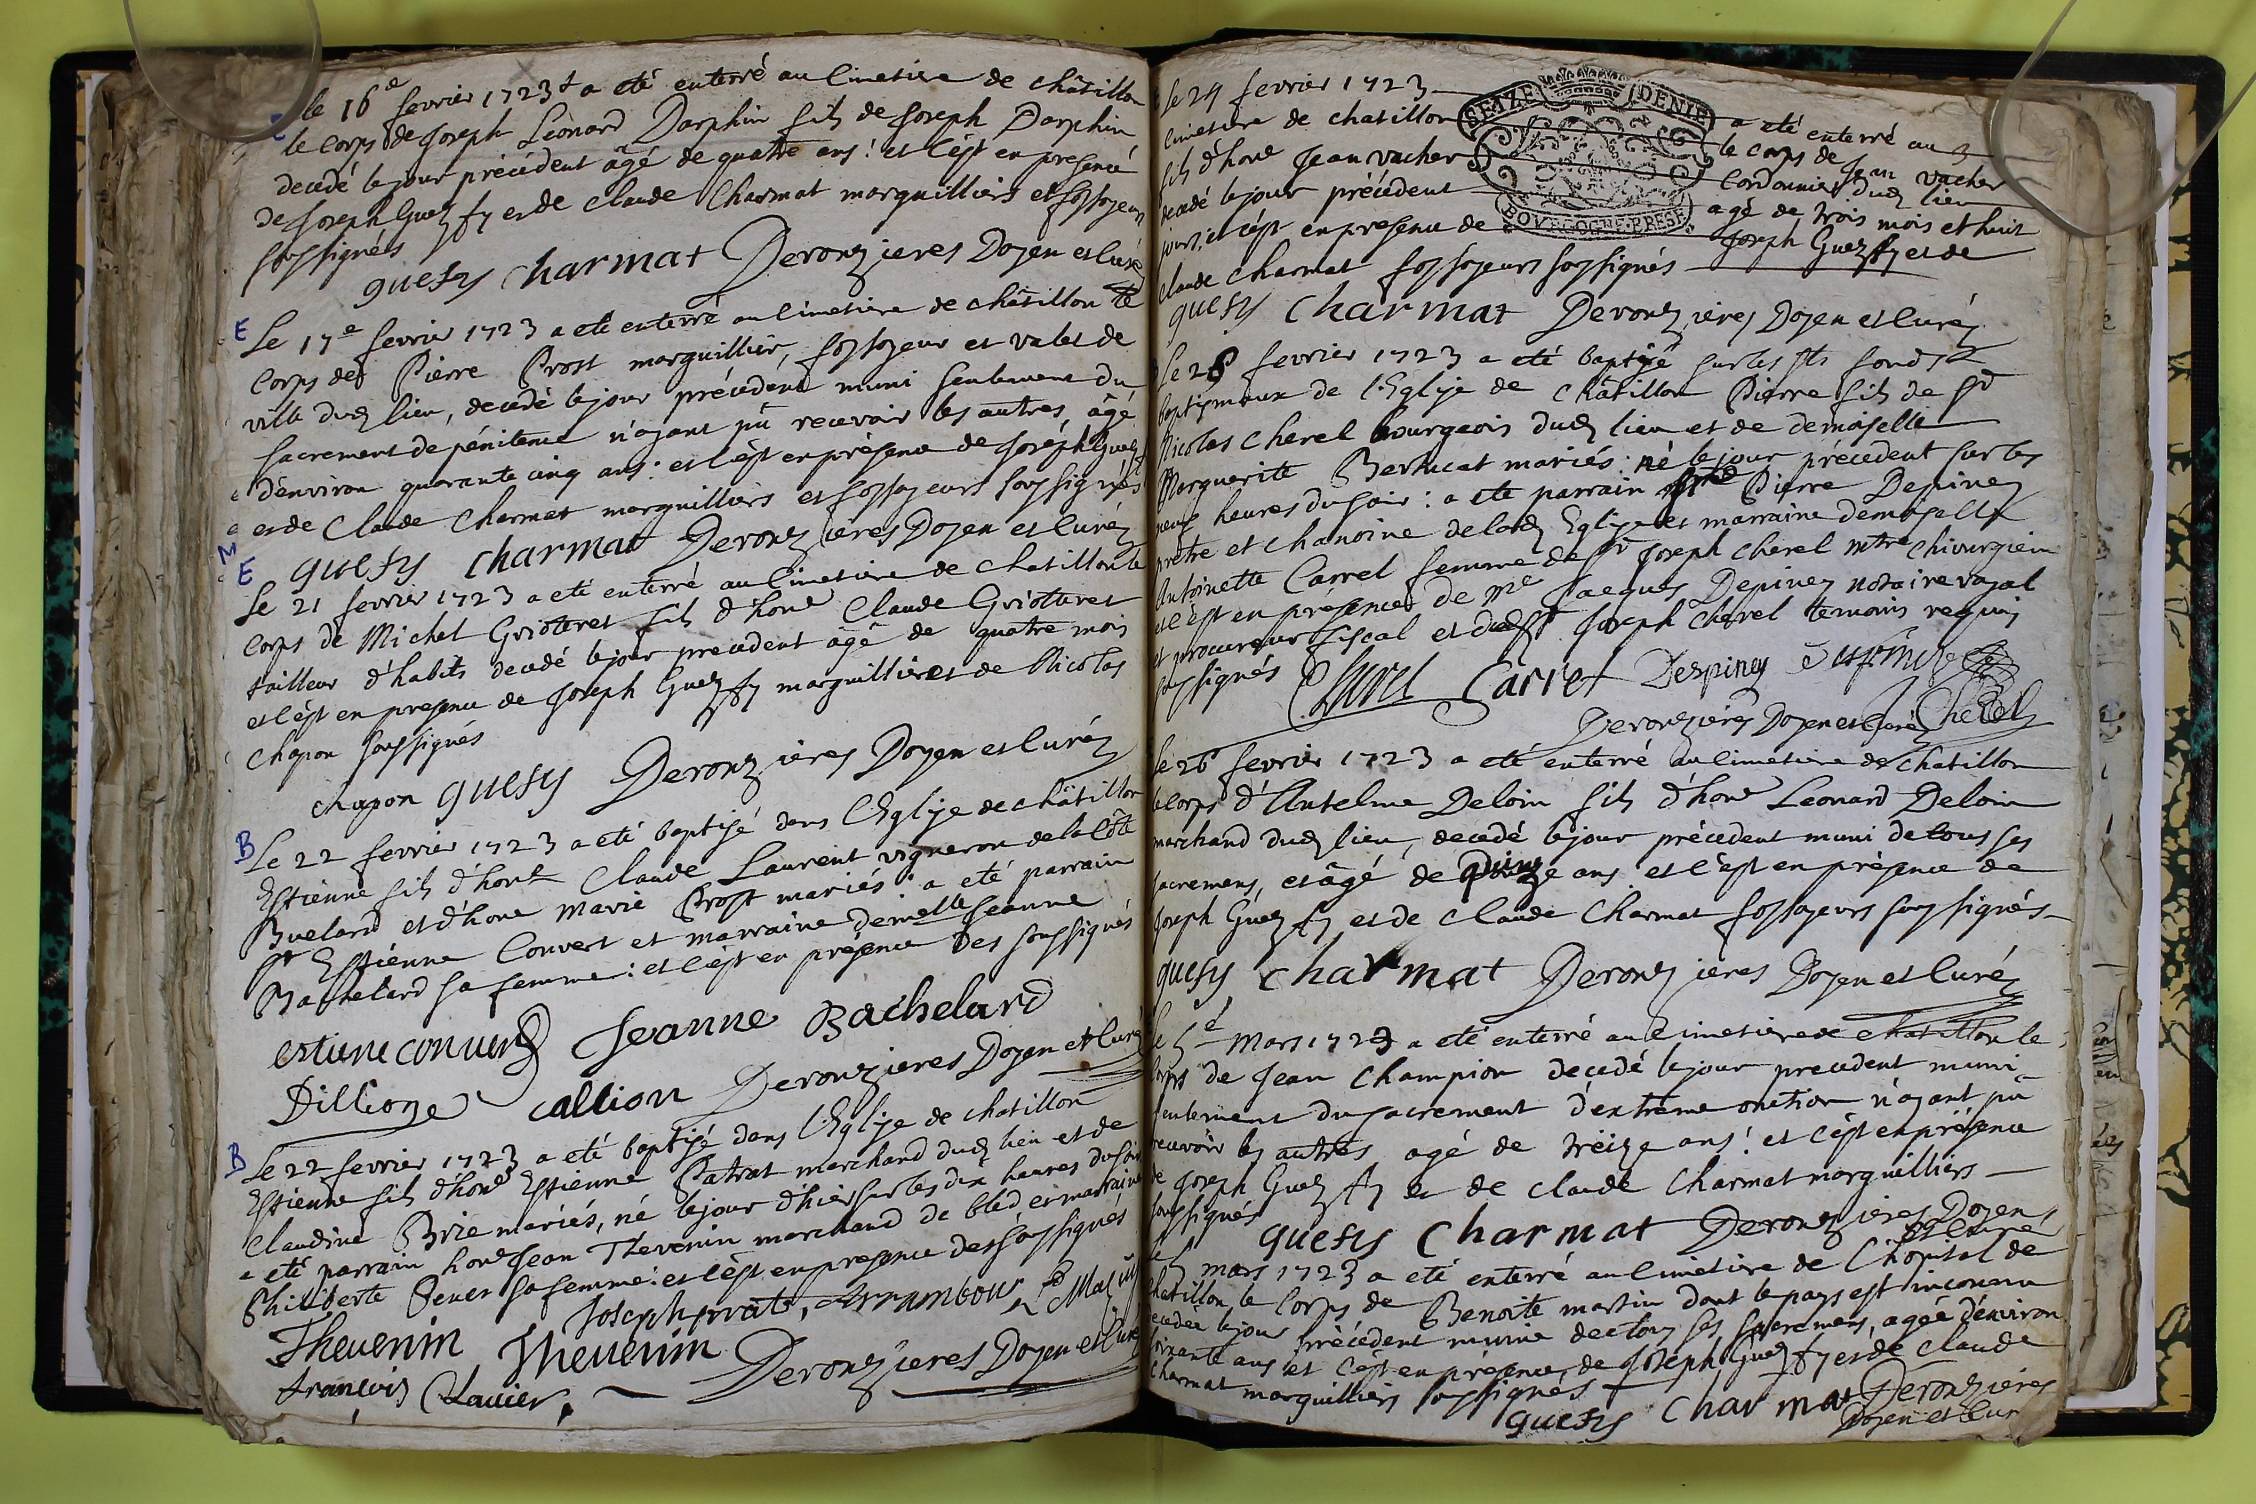 E
le 16e fevrier 1723 a eté enterré au Cimetiere de châtillon
le corps de Joseph Leonard Darphin fils de Joseph Darphin
decedé le jour précédent âgé de quatre ans: et c'est en presence
de Joseph Guez fy et de Claude Charmat marguilliers et fossoyeurs
soussignés
guefy charmat Deronzieres Doyen et Curé
E
Le 17e fevrier 1723 a eté enterré au Cimetiere de châtillon le
Corps de Pierre Prost marguillier, fossoyeur et valet de
ville dud lieu, decedé le jour précédent muni seulement du
sacrement de pénitence n'ayant pû recevoir les autres, âgé
d'environ quarante cinq ans: et c'est en présence de Joseph Guez fy
et de Claude Charmat marguilliers et fossoyeurs soussignés
guefy charmat Deronzieres Doyen et Curé
M
E
Le 21 fevrier 1723 a eté enterré au Cimetiere de chatillon le
corps de Michel Grioteret fils d'hone Claude Grioteret
tailleur d'habits decedé le jour precedent âgé de quatre mois
et c'est en presence de Joseph Guez fy marguillier et de Nicolas
chapon soussignés
chapon guefy Deronzieres Doyen et Curé
B
Le 22 fevrier 1723 a eté baptisé dans l'Eglise de châtillon
Estienne fils d'hone Claude Laurent vigneron de la Côte
Buelard et d'hone Marie Prost mariés: a eté parrain
sr Estienne Convert et marraine demelle Jeanne
Bachelard sa femme: et c'est en présence des soussignés
estiene convert Jeanne Bachelard
Dillione callion Deronzieres Doyen et Curé
B
Le 22 fevrier 1723 a eté baptisé dans l'Eglise de chatillon
Estienne fils d'hone Estienne Patrat marchand dud lieu et de
Claudine Brie mariés, né le jour d'hier sur les dix heures du soir
a eté parrain hone Jean Thevenin marchand de bled et marraine
Philiberte sa femme: et c'est en presence des soussignés
Joseph
Thevenin Thevenin
françois Deronzieres Doyen et Curé
Le 24 fevrier 1723 a eté enterré au
Cimetiere de chatillon le corps de Jean vacher
fils d'hone Jean vacher Cordonnier dud lieu
decedé le jour précédent agé de trois mois et huit
jours, et c'est en presence de Joseph Guez fy et de
Claude Charmat fossoyeurs soussignés
SEIZE DENIE
BOVRGOGNE·BRESE
guefy charmat Deronzieres Doyen et Curé
Le 26 fevrier 1723 a eté baptisé sur les sts fonds
baptismaux de l'Eglise de Châtillon Pierre fils de sr
Nicolas Cherel bourgeois dud lieu et de demoiselle
Marguerite Berlucat mariés: né le jour précedent sur les
neuf heures du soir: a eté parrain Pierre Depiney
pretre et chanoine de lad Eglise et marraine demoiselle
Antoinette Carrel femme de sr Joseph Cherel mtre Chirurgien
et c'est en présence de Me Jacques Depiney notaire royal
et procureur fiscal et dud sr Joseph Cherel temoins requis
soussignés Cherel Carret Despiney Despiney
Deronzieres Doyen et Curé Cherel
Le 26 fevrier 1723 a eté enterré au Cimetiere de Chatillon
le corps d'Antelme Deloin fils d'hone Leonard Deloin
marchand dud lieu, decedé le jour précedent muni de tous ses
sacremens, et âgé de quinze ans et c'est en présence de
Joseph Guez fy et de Claude Charmat fossoyeurs soussignés
guefy charmat Deronzieres Doyen et Curé
le 5e Mars 1723 a eté enterré au Cimetiere de chatillon le
corps de Jean Champion decedé le jour precedent muni
seulement du sacrement d'extrême onction n'ayant pu
recevoir les autres agé de treize ans: et c'est en présence
de Joseph Guez fy et de Claude Charmat marguilliers
soussignés
guefy charmat Deronzieres Doyen
et Curé
Le 5 mars 1723 a eté enterré au Cimetiere de l'hopital de
chatillon le Corps de Benoite martin dont le pays est inconnu
decedée le jour précédent munie de tous ses sacremens, agée d'environ
soixante ans et c'est en présence de Joseph Guez fy et de Claude
Charmat marguilliers soussignés
guefy charmat Deronzieres
Doyen et Cur